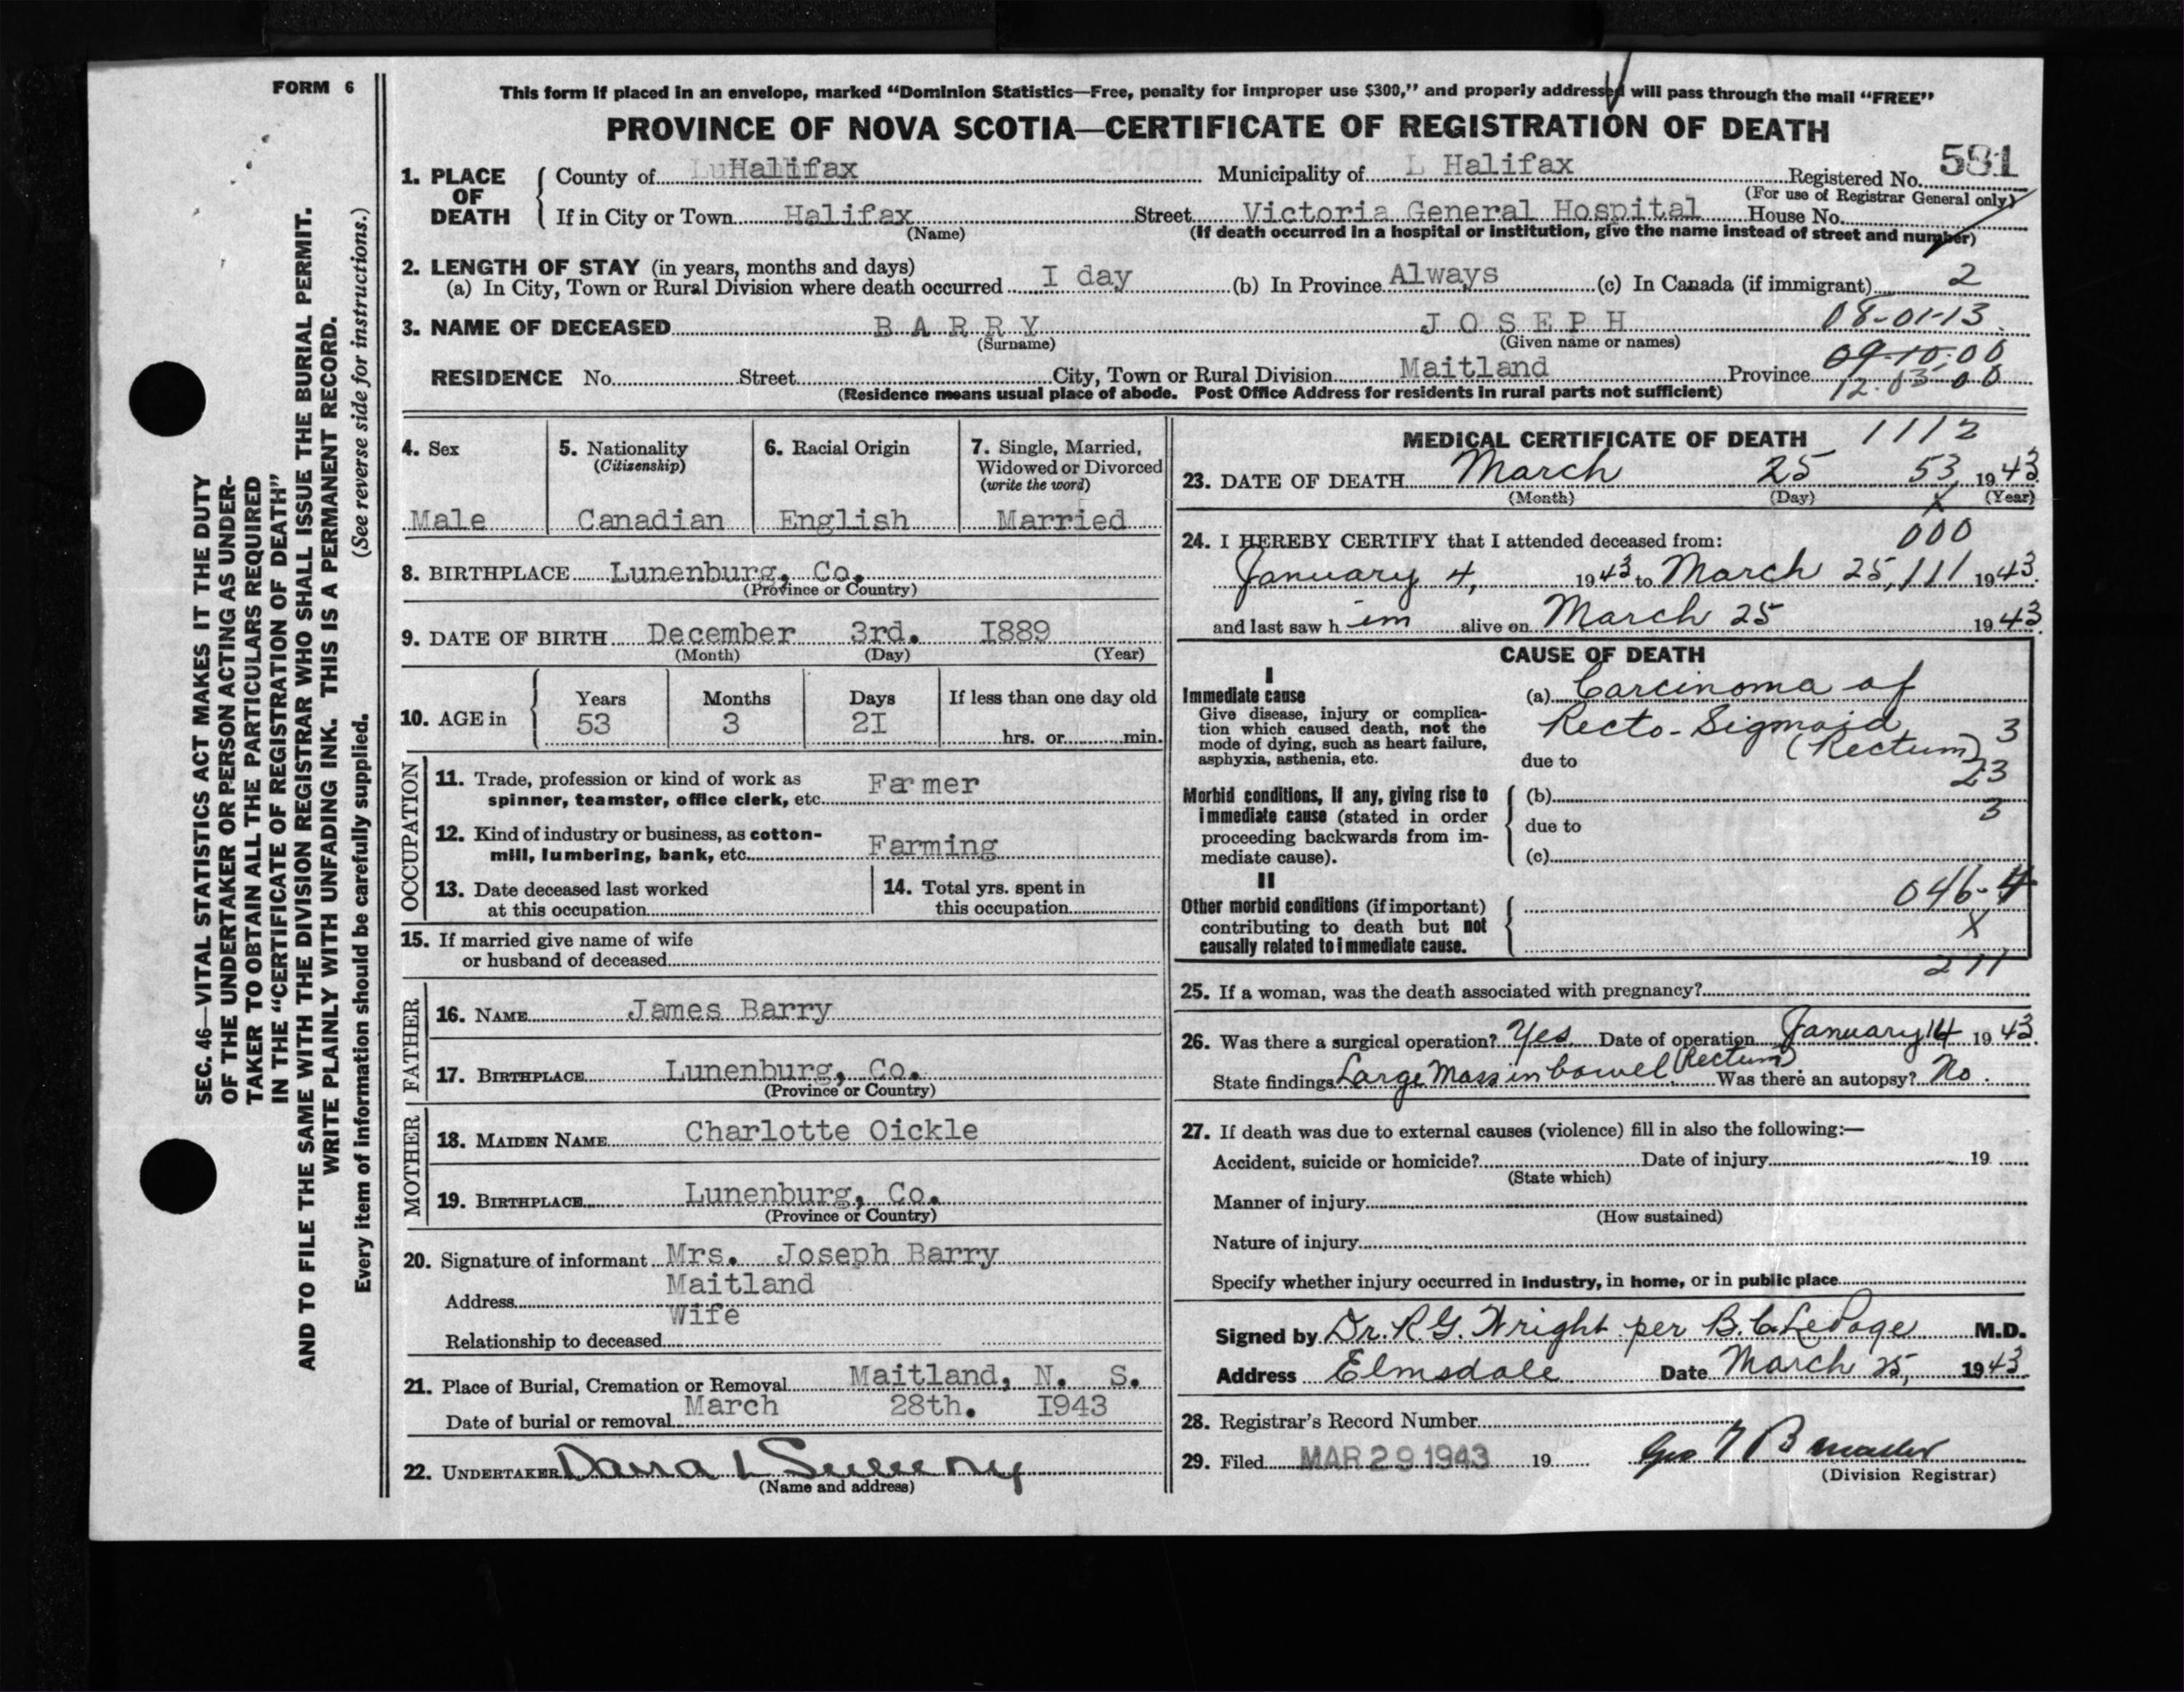 FORM 6
This form if placed in an envelope, marked "Dominion Statistics—Free, penalty for improper use $300," and properly addressed will pass through the mail "FREE"
PROVINCE OF NOVA SCOTIA—CERTIFICATE OF REGISTRATION OF DEATH
581
1. PLACE OF DEATH { County of LuHalifax Municipality of L Halifax Registered No.
(For use of Registrar General only)
If in City or Town Halifax Street Victoria General Hospital House No.
(Name) (If death occurred in a hospital or institution, give the name instead of street and number)
2. LENGTH OF STAY (in years, months and days)
(a) In City, Town or Rural Division where death occurred I day (b) In Province Always (c) In Canada (if immigrant) 2
3. NAME OF DECEASED B A R R Y J O S E P H 08-01-13
(Surname) (Given name or names)
09-10-00
RESIDENCE No. Street City, Town or Rural Division Maitland Province 12-03-00
(Residence means usual place of abode. Post Office Address for residents in rural parts not sufficient)
SEC. 46—VITAL STATISTICS ACT MAKES IT THE DUTY
OF THE UNDERTAKER OR PERSON ACTING AS UNDER-
TAKER TO OBTAIN ALL THE PARTICULARS REQUIRED
IN THE "CERTIFICATE OF REGISTRATION OF DEATH"
AND TO FILE THE SAME WITH THE DIVISION REGISTRAR WHO SHALL ISSUE THE BURIAL PERMIT.
WRITE PLAINLY WITH UNFADING INK. THIS IS A PERMANENT RECORD.
Every item of information should be carefully supplied. (See reverse side for instructions.)
4. Sex
Male
5. Nationality
(Citizenship)
Canadian
6. Racial Origin
English
7. Single, Married,
Widowed or Divorced
(write the word)
Married
8. BIRTHPLACE Lunenburg, Co.
(Province or Country)
9. DATE OF BIRTH December 3rd. I889
(Month) (Day) (Year)
10. AGE in { Years Months Days If less than one day old
53 3 2I hrs. or min.
OCCUPATION
11. Trade, profession or kind of work as
spinner, teamster, office clerk, etc. Farmer
12. Kind of industry or business, as cotton-
mill, lumbering, bank, etc. Farming
13. Date deceased last worked
at this occupation
14. Total yrs. spent in
this occupation
15. If married give name of wife
or husband of deceased
FATHER
16. NAME James Barry
17. BIRTHPLACE Lunenburg, Co.
(Province or Country)
MOTHER
18. MAIDEN NAME Charlotte Oickle
19. BIRTHPLACE Lunenburg, Co.
(Province or Country)
20. Signature of informant Mrs. Joseph Barry
Address Maitland
Relationship to deceased Wife
21. Place of Burial, Cremation or Removal Maitland, N. S.
Date of burial or removal March 28th. I943
22. UNDERTAKER
(Name and address)
MEDICAL CERTIFICATE OF DEATH 1112
23. DATE OF DEATH March 25 53, 1943
(Month) (Day) X (Year)
24. I HEREBY CERTIFY that I attended deceased from: 000
January 4, 1943 to March 25, 111 1943
and last saw him alive on March 25 1943
CAUSE OF DEATH
I
Immediate cause
Give disease, injury or complica-
tion which caused death, not the
mode of dying, such as heart failure,
asphyxia, asthenia, etc.
(a) Carcinoma of
Recto-Sigmoid 3
(Rectum)
due to 23
Morbid conditions, if any, giving rise to
immediate cause (stated in order
proceeding backwards from im-
mediate cause).
(b) 3
due to
(c)
II
Other morbid conditions (if important)
contributing to death but not
causally related to immediate cause.
046-4
X
211
25. If a woman, was the death associated with pregnancy?
26. Was there a surgical operation? Yes Date of operation January 14 1943
State findings Large Mass in bowel (Rectum) Was there an autopsy? No.
27. If death was due to external causes (violence) fill in also the following:—
Accident, suicide or homicide? Date of injury 19
(State which)
Manner of injury
(How sustained)
Nature of injury
Specify whether injury occurred in industry, in home, or in public place
Signed by Dr. R.G. Wright per B.C. LePage M.D.
Address Elmsdale Date March 25, 1943
28. Registrar's Record Number
29. Filed MAR 29 1943 19
(Division Registrar)